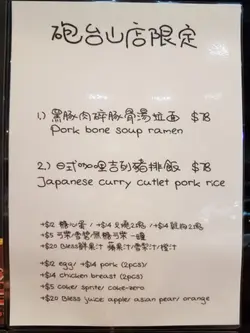 砲台山店限定
1.) 黑豚肉碎豚骨湯拉面 $78
Pork bone soup ramen
2.) 日式咖哩吉列豬排飯 $78
Japanese curry cutlet pork rice
+$12 糖心蛋 / +$14 叉燒2塊 / +$14 雞胸2塊
+$5 可樂/雪碧/無糖可樂 一罐
+$20 Bless鮮果汁 蘋果汁/雪梨汁/橙汁
+$12 egg/ +$14 pork (2pcs)/
+$14 chicken breast (2pcs)
+$5 coke/ sprite/ coke-zero
+$20 Bless juice apple/ asian pear/ orange